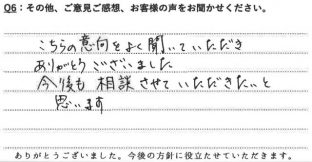 Q6：その他、ご意見ご感想、お客様の声をお聞かせください。
こちらの意向をよく聞いていただき
ありがとうございました
今後も相談させていただきたいと
思います
ありがとうございました。今後の方針に役立たせていただきます。